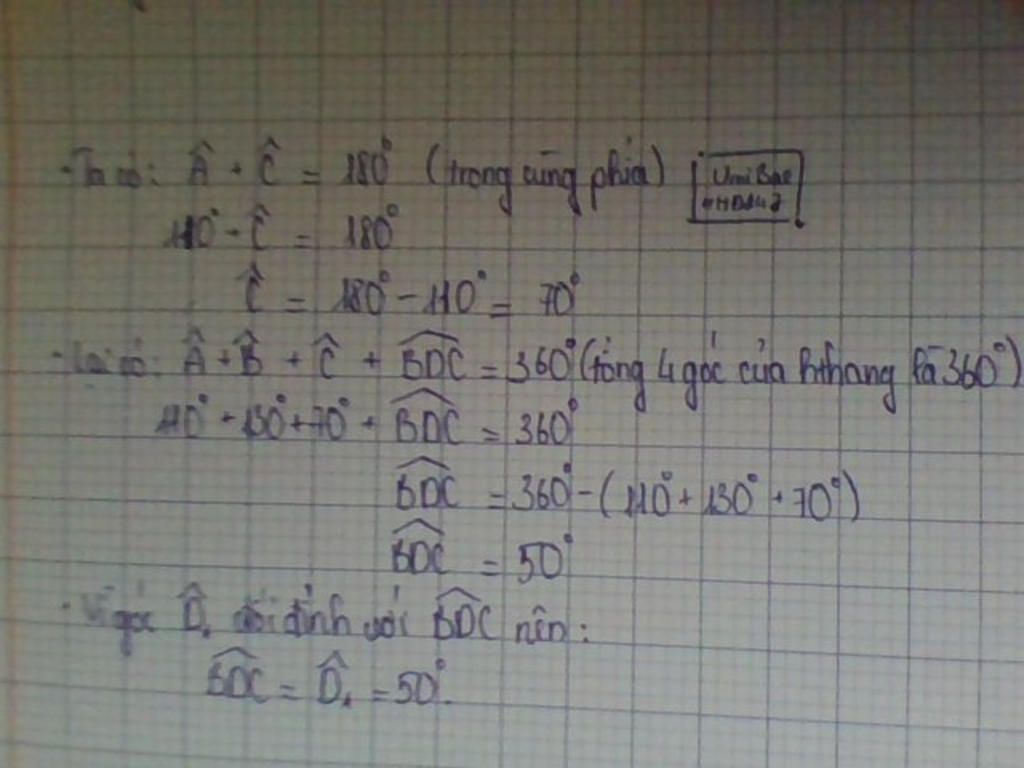 - Ta có: Â + Ĉ = 180° (trong cùng phía)
UmiBae
110° + Ĉ = 180°
Ĉ = 180° - 110° = 70°
- Lại có: Â + B̂ + Ĉ + \widehat{BDC} = 360° (tổng 4 góc của hthang là 360°)
110° + 130° + 70° + \widehat{BDC} = 360°
\widehat{BDC} = 360° - (110° + 130° + 70°)
\widehat{BDC} = 50°
- Vì góc D̂₁ đối đỉnh với \widehat{BDC} nên:
\widehat{BDC} = D̂₁ = 50°.